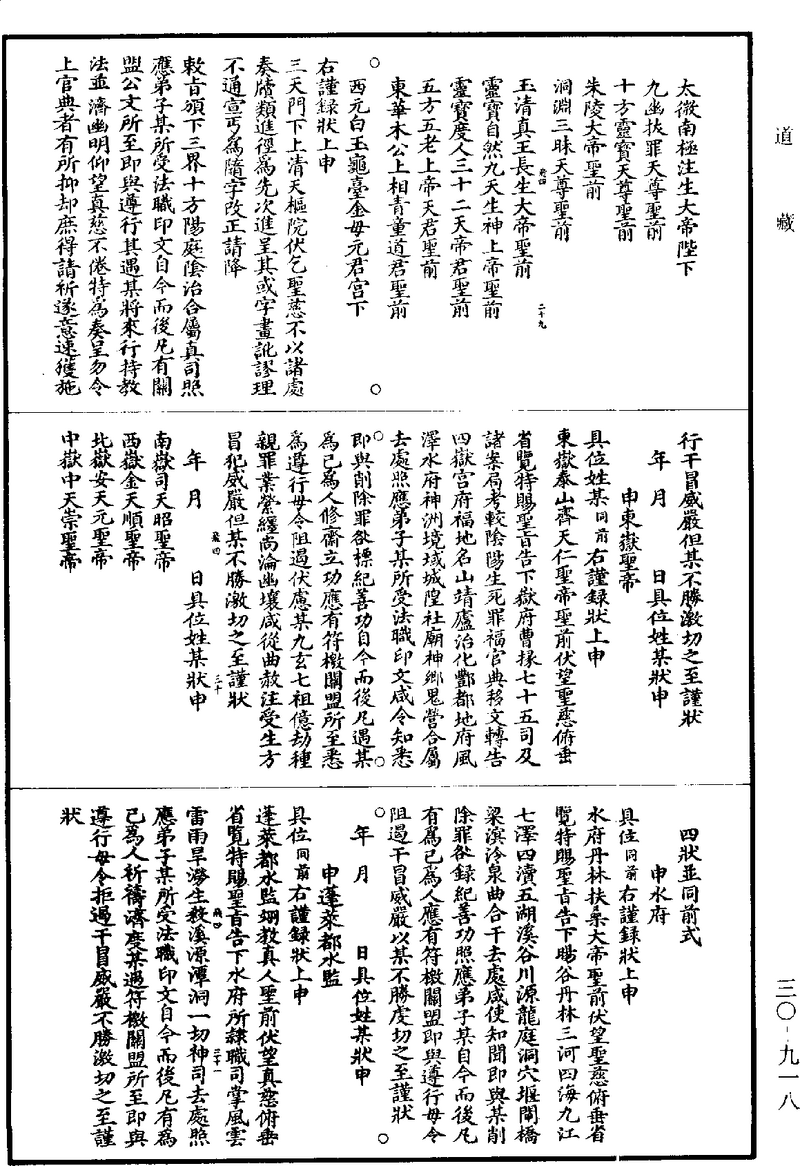 道藏
太微南極注生大帝陛下
九幽拔罪天尊聖前
十方靈寶天尊聖前
朱陵大帝聖前
洞淵三昧天尊聖前
玉清真王長生大帝聖前
靈寶自然九天生神上帝聖前
靈寶度人三十二天帝君聖前
五方五老上帝天君聖前
東華木公上相青童道君聖前
西元白玉龜臺金母元君宫下
右謹録狀上申
三天門下上清天樞院伏乞聖慈不以諸處
奏牘類進徑爲先次進呈其或字畫訛謬理
不通宣丐爲隨字改正請降
敕旨頒下三界十方陽庭陰治合屬真司照
應弟子某所受法職印文自今而後凡有關
盟公文所至即與遵行其遇某將來行持教
法並濟幽明仰望真慈不倦特爲奏呈勿令
上官典者有所抑却庶得請祈遂意速獲施
二十九
行干冒威嚴但某不勝激切之至謹狀
年 月 日具位姓某狀申
申東嶽聖帝
具位姓某同前右謹録狀上申
東嶽泰山齊天仁聖帝聖前伏望聖慈俯垂
省覽特賜聖旨告下嶽府曹掾七十五司及
諸案局考較陰陽生死罪福官典移文轉告
四嶽宫府福地名山靖廬治化酆都地府風
澤水府神洲境域城隍社廟神鄉鬼營合屬
去處照應弟子某所受法職印文咸令知悉
即與削除罪欲標紀善功自今而後凡遇某
爲已爲人修齋立功應有符檄關盟所至悉
爲遵行毋令阻遏伏慮某九玄七祖億劫種
親罪業縈纏尚淪幽壤咸從曲赦注受生方
冒犯威嚴但某不勝激切之至謹狀
年 月 日具位姓某狀申
三十
南嶽司天昭聖帝
西嶽金天順聖帝
北嶽安天元聖帝
中嶽中天崇聖帝
四狀並同前式
申水府
具位同前右謹録狀上申
水府丹林扶桑大帝聖前伏望聖慈俯垂省
覽特賜聖旨告下暘谷丹林三河四海九江
七澤四瀆五湖溪谷川源龍庭洞穴堰閘橋
梁濱泠泉曲合干去處咸使知聞即與某削
除罪咎録紀善功照應弟子某自今而後凡
有爲已爲人應有符檄關盟即與遵行毋令
阻遏干冒威嚴以某不勝虔切之至謹狀
年 月 日具位姓某狀申
申蓬萊都水監
具位同前右謹録狀上申
蓬萊都水監翊教真人聖前伏望真慈俯垂
省覽特賜聖旨告下水府所隸職司掌風雲
雷雨旱澇生殺溪源潭洞一切神司去處照
三十一
應弟子某所受法職印文自今而後凡有爲
已爲人祈禱濟度某遇符檄關盟所至即與
遵行毋令拒遏干冒威嚴不勝激切之至謹
狀
三〇-九一八